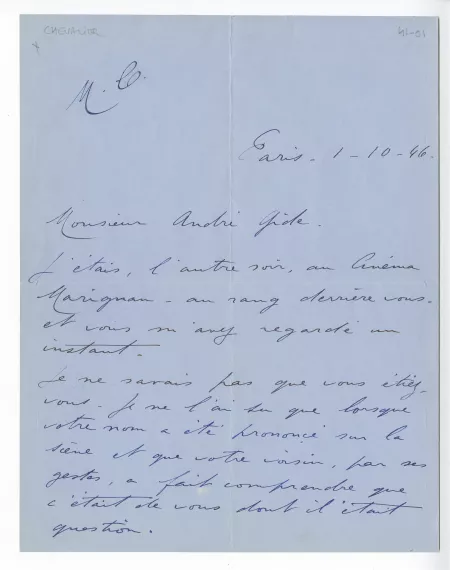 CHEVALIER
41-91
M. C.
Paris - 1-10-46.
Monsieur André Gide.
J'étais, l'autre soir, au Cinéma
Marignan - au rang derrière vous -
et vous m'avez regardé un
instant.
Je ne savais pas que vous étiez
vous. Je ne l'ai su que lorsque
votre nom a été prononcé sur la
scène et que votre voisin, par ses
gestes, a fait comprendre que
c'était de vous dont il était
question.